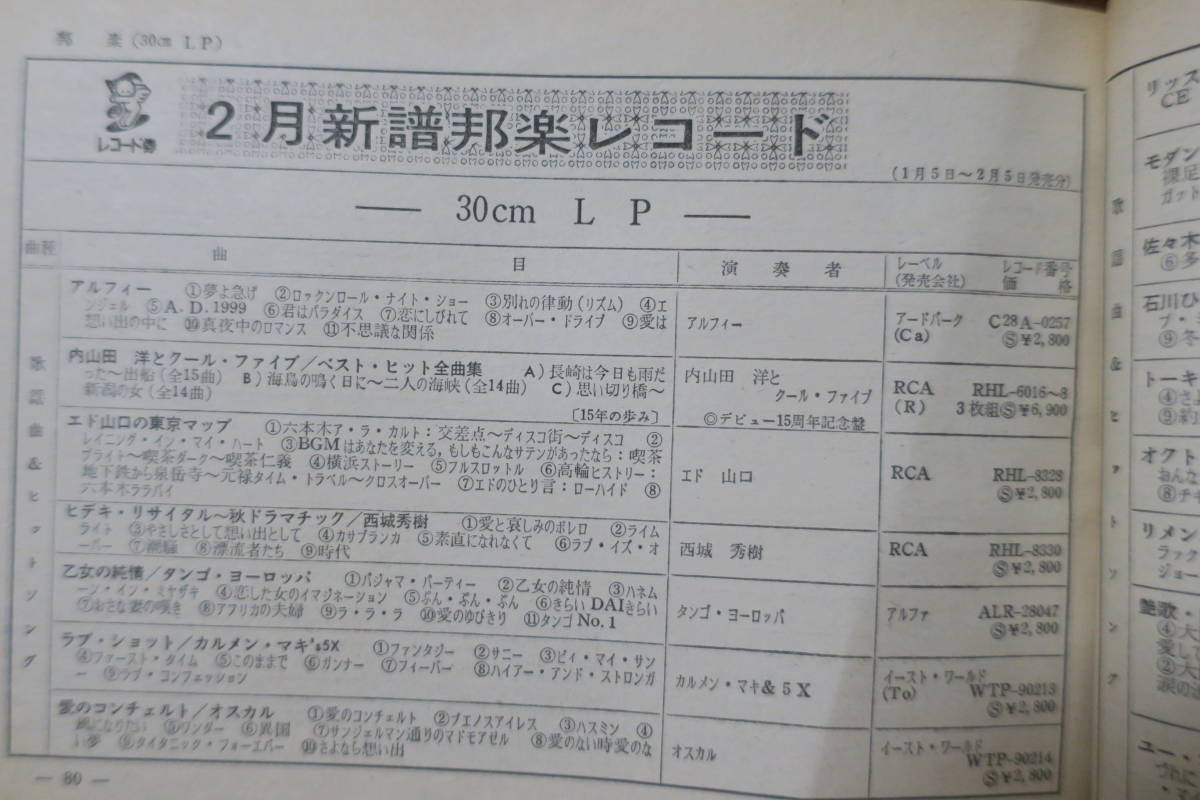 邦 楽 (30cm LP)
レコード
2月新譜邦楽レコード
(1月5日〜2月5日発売分)
30cm L P
曲種
曲 目
演 奏 者
レーベル (発売会社)
レコード番号 価 格
歌謡曲&ヒットソング
アルフィー ①夢よ急げ ②ロックンロール・ナイト・ショー ③別れの律動(リズム) ④エ
ンジェル ⑤A.D.1999 ⑥君はパラダイス ⑦恋にしびれて ⑧オーバー・ドライブ ⑨愛は
想い出の中に ⑩真夜中のロマンス ⑪不思議な関係
アルフィー
アードパーク C28A-0257
(Ca) Ⓢ¥2,800
内山田 洋とクール・ファイブ/ベスト・ヒット全曲集 A)長崎は今日も雨だ
った〜出船(全15曲) B)海鳥の鳴く日に〜二人の海峡(全14曲) C)思い切り橋〜
新潟の女(全14曲) 〔15年の歩み〕
内山田 洋と
クール・ファイブ
◎デビュー15周年記念盤
RCA RHL-6016〜8
(R) 3枚組Ⓢ¥6,900
エド山口の東京マップ ①六本木ア・ラ・カルト:交差点〜ディスコ街〜ディスコ ②
レイニング・イン・マイ・ハート ③BGMはあなたを変える,もしもこんなサテンがあったなら:喫茶
ブライト〜喫茶ダーク〜喫茶仁義 ④横浜ストーリー ⑤フルスロットル ⑥高輪ヒストリー:
地下鉄から泉岳寺〜元禄タイム・トラベル〜クロスオーバー ⑦エドのひとり言:ローハイド ⑧
六本木ララバイ
エド 山口
RCA RHL-8328
Ⓢ¥2,800
ヒデキ・リサイタル〜秋ドラマチック/西城秀樹 ①愛と哀しみのボレロ ②ライム
ライト ③やさしさとして想い出として ④カサブランカ ⑤素直になれなくて ⑥ラブ・イズ・オ
ーバー ⑦潮騒 ⑧漂流者たち ⑨時代
西城 秀樹
RCA RHL-8330
Ⓢ¥2,800
乙女の純情/タンゴ・ヨーロッパ ①パジャマ・パーティー ②乙女の純情 ③ハネム
ーン・イン・ミヤザキ ④恋した女のイマジネーション ⑤ぶん・ぶん・ぶん ⑥きらいDAIきらい
⑦おさな妻の嘆き ⑧アフリカの夫婦 ⑨ラ・ラ・ラ ⑩愛のゆびきり ⑪タンゴNo.1
タンゴ・ヨーロッパ
アルファ ALR-28047
Ⓢ¥2,800
ラブ・ショット/カルメン・マキ&5X ①ファンタジー ②サニー ③ビィ・マイ・サン
④ファースト・タイム ⑤このままで ⑥ガンナー ⑦フィーバー ⑧ハイアー・アンド・ストロンガ
ー ⑨ラブ・コンフェッション
カルメン・マキ&5X
イースト・ワールド
(To) WTP-90213
Ⓢ¥2,800
愛のコンチェルト/オスカル ①愛のコンチェルト ②ブエノスアイレス ③ハスミン ④
風になりたい ⑤ワンダー ⑥異国 ⑦サンジェルマン通りのマドモアゼル ⑧愛のない時愛のな
い夢 ⑨タイタニック・フォーエバー ⑩さよなら想い出
オスカル
イースト・ワールド
WTP-90214
Ⓢ¥2,800
— 80 —
歌謡曲&ヒットソング
リッス
CE
モダン
裸足
ガット
佐々木
⑥多
石川ひ
⑨冬
トーキ
④さ
オクト
おんな
⑧チ
リメン
ラック
ジョー
艶歌・
④大
愛して
②大
涙の
ユー・